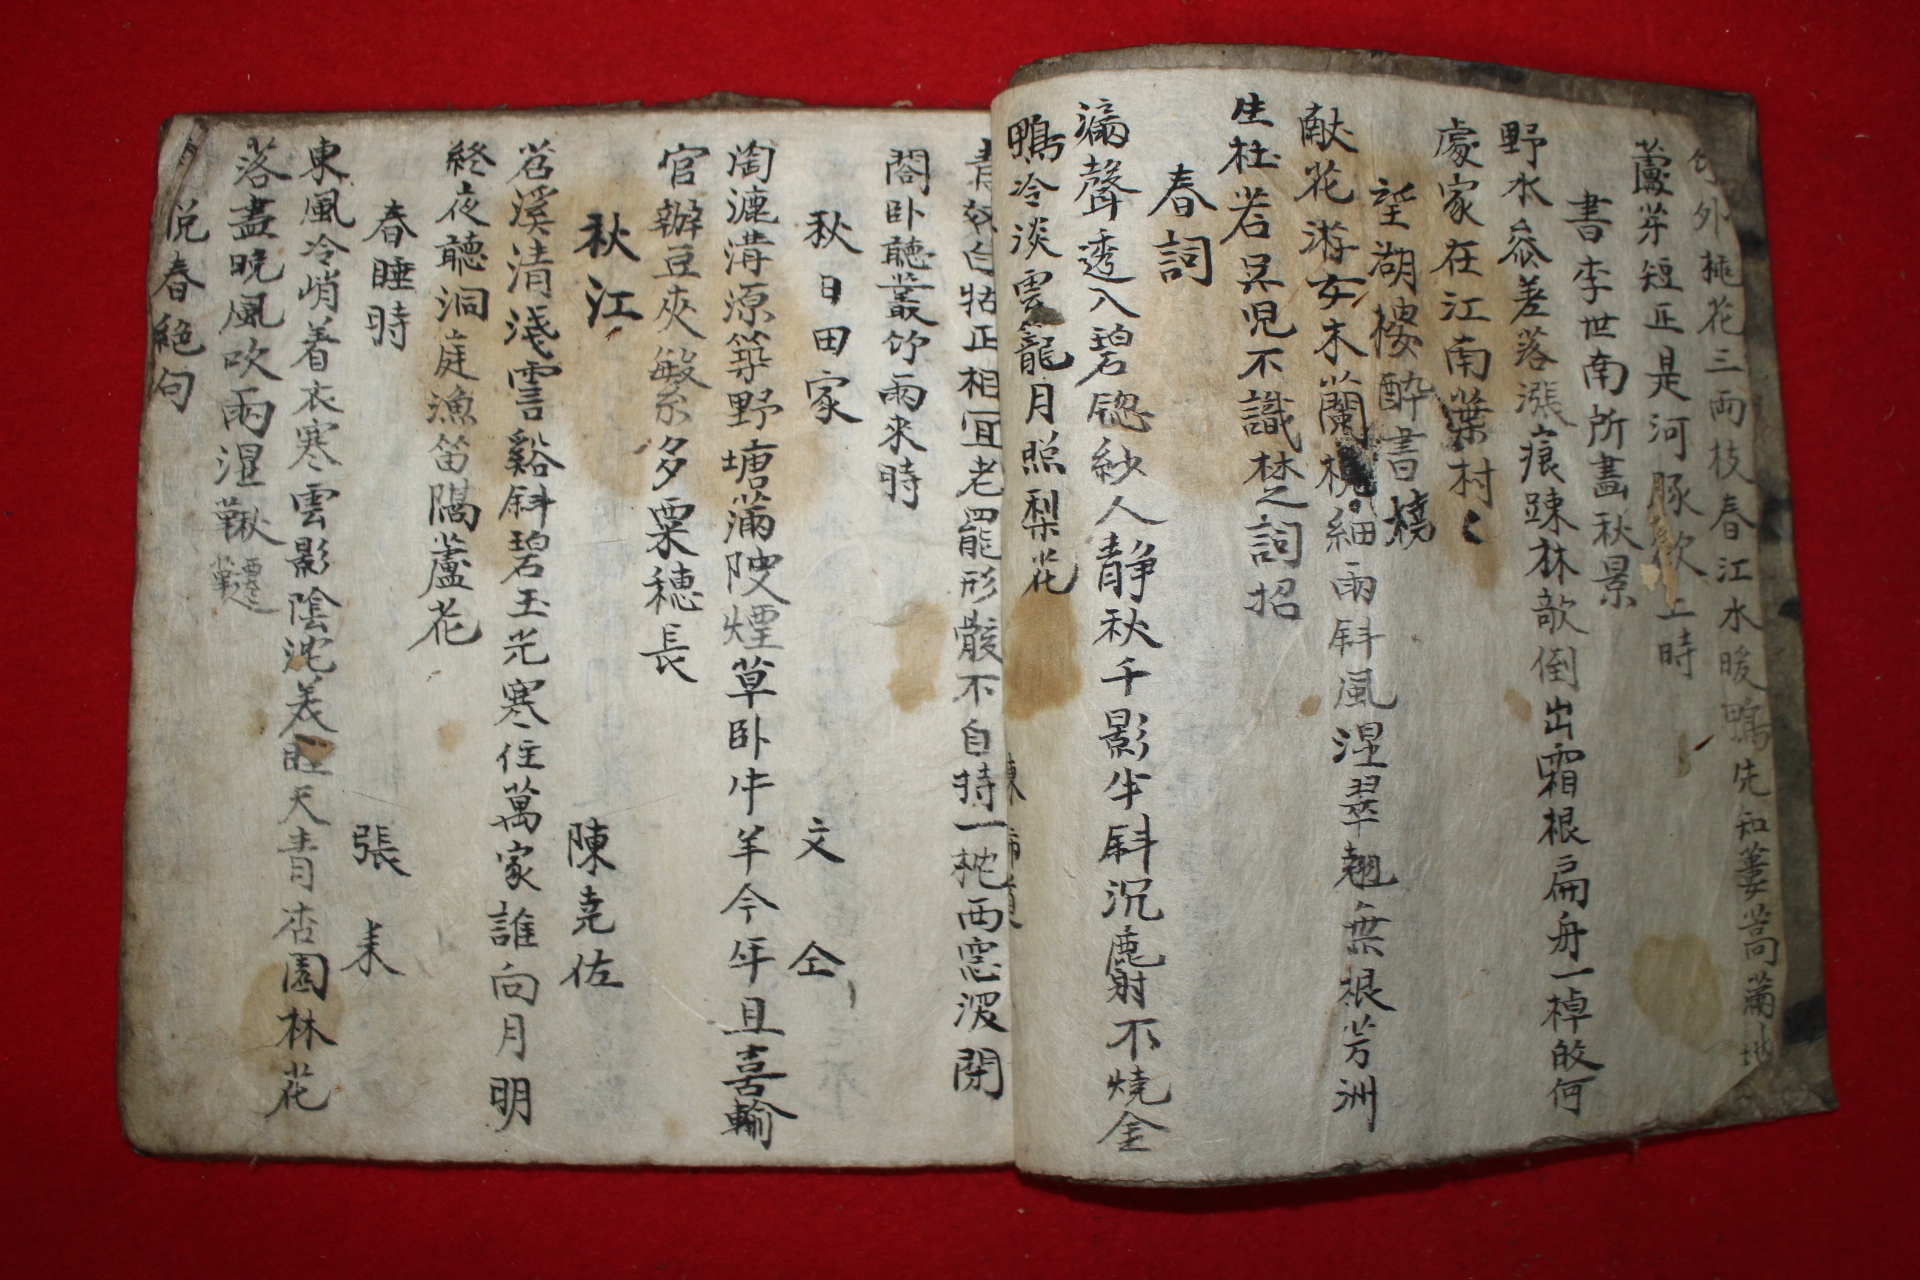 竹外桃花三兩枝春江水暖鴨先知蔞蒿滿地
蘆芽短正是河豚欲上時
書李世南所畫秋景
野水叅差落漲痕踈林欹倒出霜根扁舟一棹皈何
處家在江南葉村
望湖樓醉書
献花游女木蘭橈細雨斜風湿翠翹無根芳洲
生杜若吴児不識楚詞招
春詞
滿聲透入碧窓紗人靜秋千影半斜沉麝不燒金
鴨冷淡雲籠月照梨花
青奴白牯正相宜老罷形骸不自持一枕西窓深閉
閤卧聽叢竹雨来時
秋日田家 文仝
淘漉溝源築野塘滿陂煙草卧牛羊今年且喜輸
官辦豆夾繁多粟穗長
秋江 陳尭佐
苕溪清淺霅谿斜碧玉光寒住萬家誰向月明
終夜聽洞庭漁笛隔蘆花
春睡時 張耒
東風冷峭着衣寒雲影陰沱羙旺天青杏園林花
落盡晩風吹雨湿鞦韆
悦春絶句